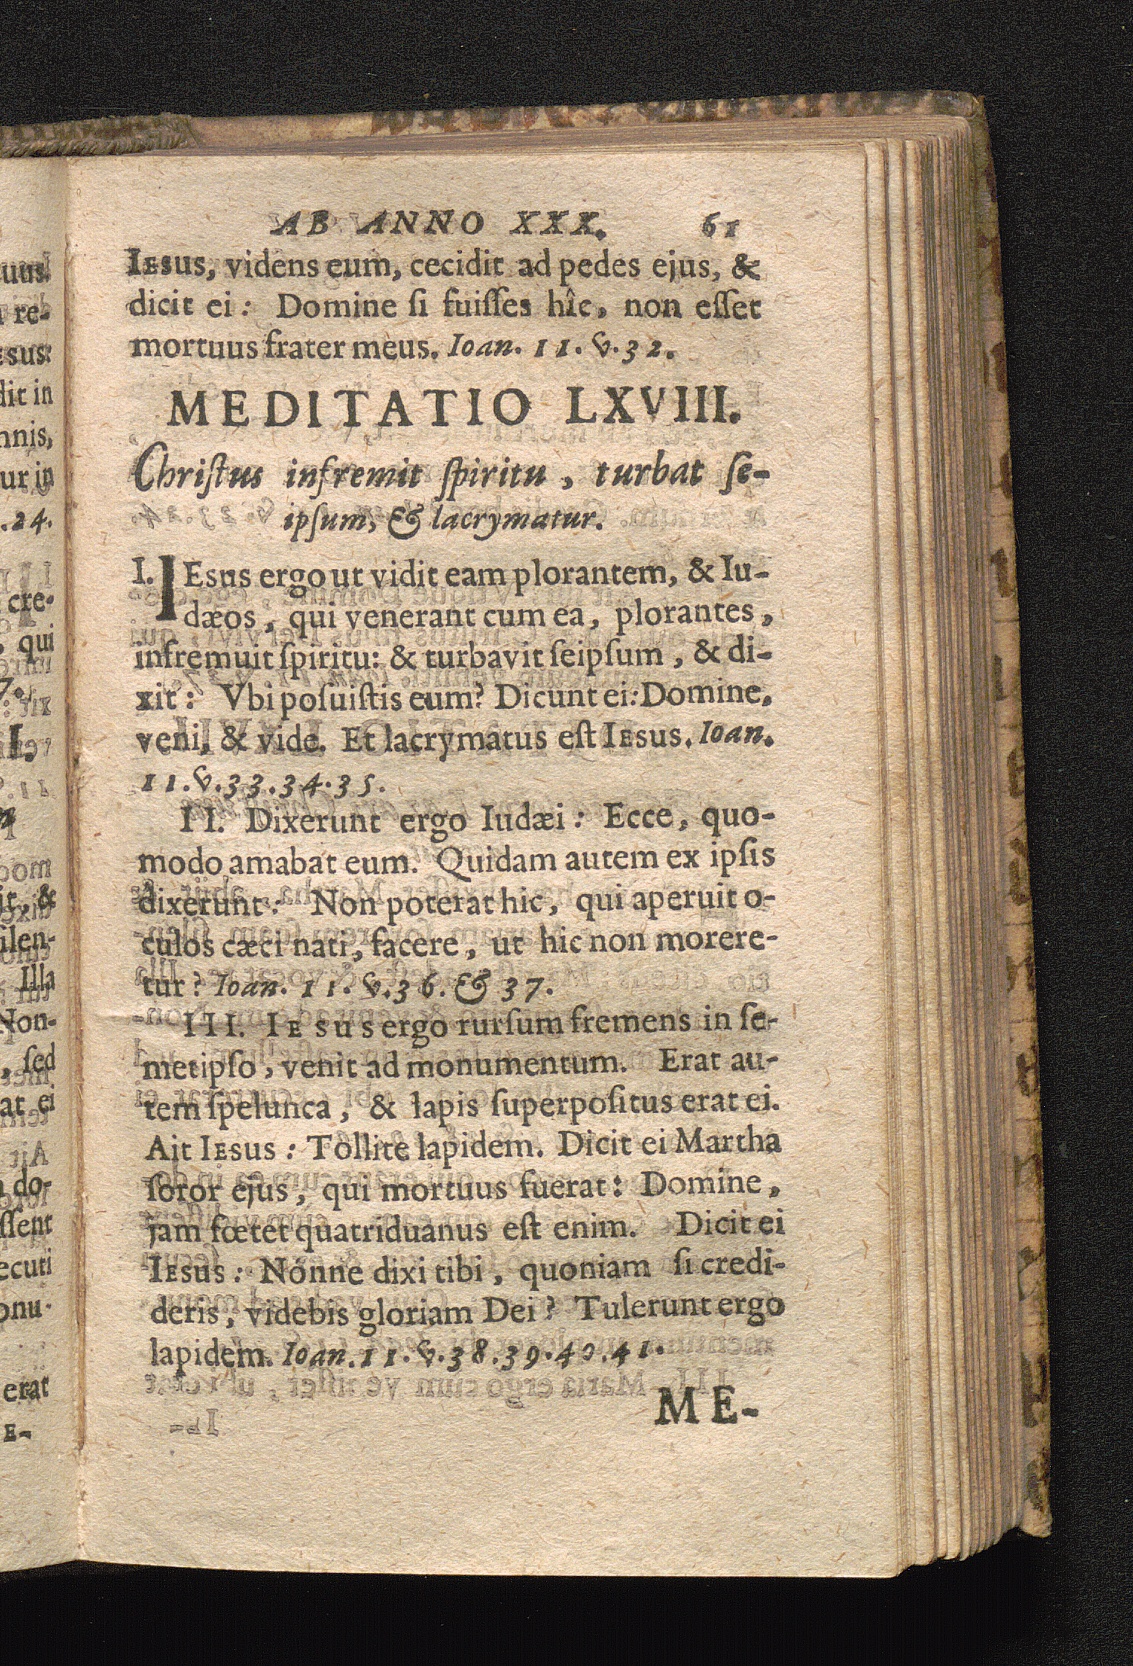 uus.
re-
ESUS:
dit in
nnis,
ur in
.24.
cre-
, qui
7.
I.
&
ilen-
Illa
Non-
, sed
at ei
do-
ssent
ecuti
onu-
erat
E-
AB ANNO XXX. 61
IESUS, videns eum, cecidit ad pedes ejus, &
dicit ei: Domine ſi fuiſſes hîc, non eſſet
mortuus frater meus. Ioan. 11. v. 32.
MEDITATIO LXVIII.
Chriſtus infremit ſpiritu, turbat ſe-
ipſum, & lacrymatur.
I. IEsus ergo ut vidit eam plorantem, & Iu-
dæos, qui venerant cum ea, plorantes,
infremuit ſpiritu: & turbavit ſeipſum, & di-
xit: Vbi poſuiſtis eum? Dicunt ei: Domine,
veni, & vide. Et lacrymatus eſt IESUS. Ioan.
11. v. 33. 34. 35.
II. Dixerunt ergo Iudæi: Ecce, quo-
modo amabat eum. Quidam autem ex ipſis
dixerunt: Non poterat hic, qui aperuit o-
culos cæci nati, facere, ut hic non morere-
tur? Ioan. 11. v. 36. & 37.
III. IESUS ergo rurſum fremens in ſe-
metipſo, venit ad monumentum. Erat au-
tem ſpelunca, & lapis ſuperpoſitus erat ei.
Ait IESUS: Tollite lapidem. Dicit ei Martha
ſoror ejus, qui mortuus fuerat: Domine,
jam fœtet quatriduanus eſt enim. Dicit ei
IESUS: Nónne dixi tibi, quoniam ſi credi-
deris, videbis gloriam Dei? Tulerunt ergo
lapidem. Ioan. 11. v. 38. 39. 40. 41.
ME-